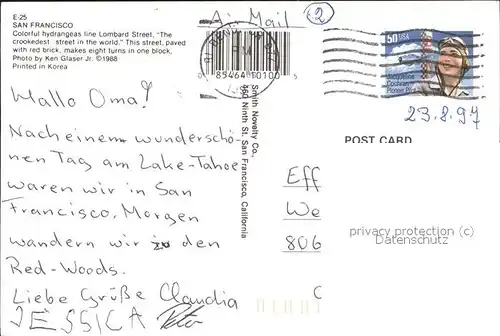 E-25
SAN FRANCISCO
Colorful hydrangeas line Lombard Street, "The
crookedest street in the world." This street, paved
with red brick, makes eight turns in one block.
Photo by Ken Glaser Jr. ©1988
Printed in Korea
Air Mail
2
0 85464 00100 5
50 USA
Jacqueline
Cochran
Pioneer Pilot
23.8.97
POST CARD
Smith Novelty Co.
460 Ninth St. San Francisco, California
Hallo Oma!
Nach einem wunderschö-
nen Tag am Lake-Tahoe
waren wir in San
Francisco. Morgen
wandern wir zu den
Red-Woods.
Liebe Grüße Claudia
JESSICA
Eff
We
806
privacy protection (c)
Datenschutz